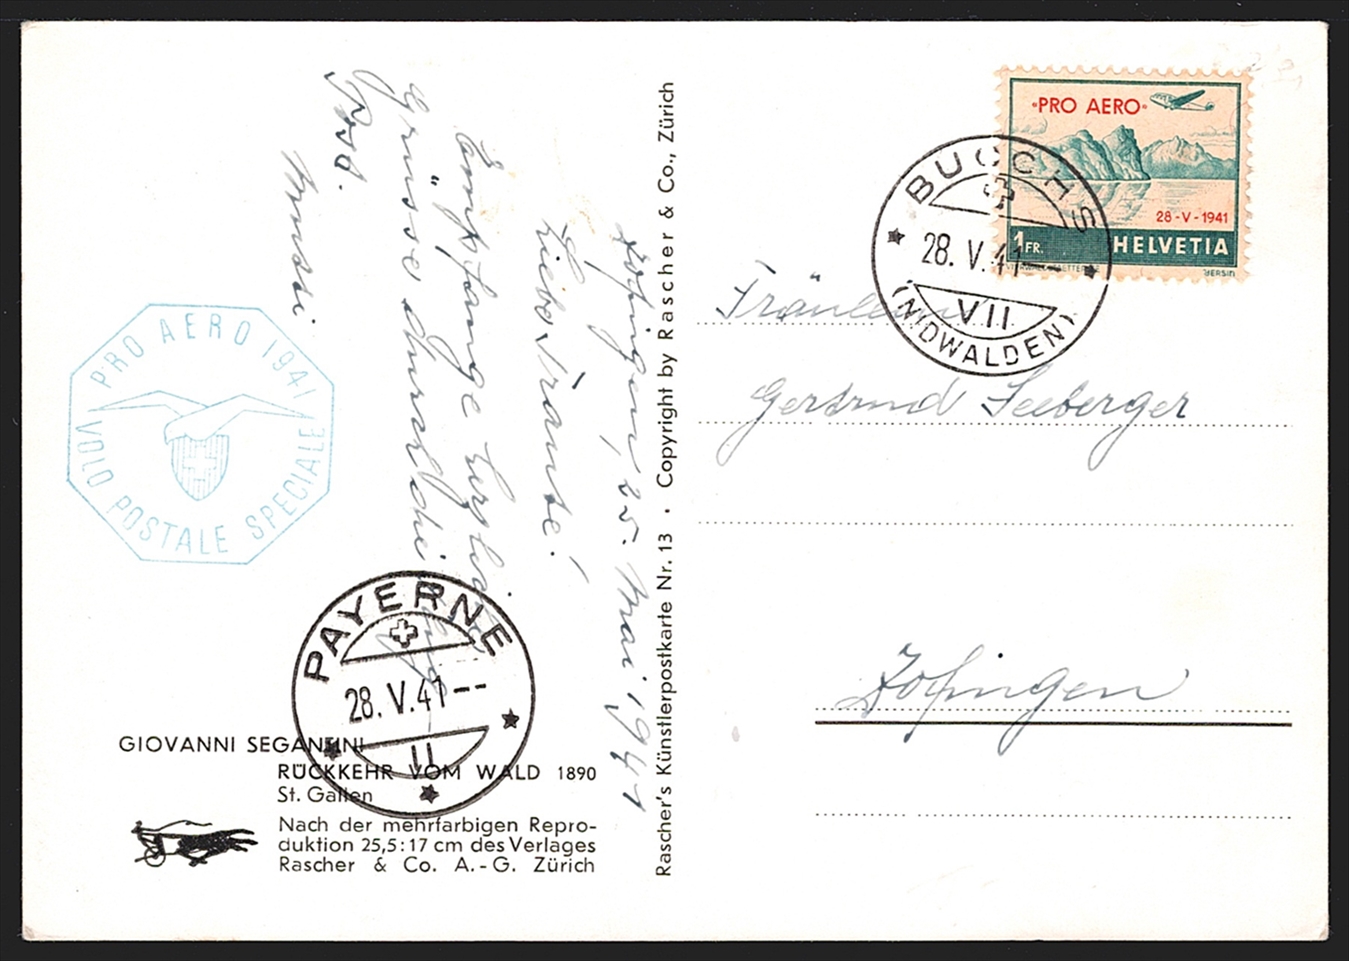 Zofingen, 25. Mai 1941
Liebe Traute!
Empfange herzliche
Grüsse durch die
Post.
PRO AERO 1941
VOLO POSTALE SPECIALE
PAYERNE
28.V.41--
II
GIOVANNI SEGANTINI
RÜCKKEHR VOM WALD 1890
St. Gallen
Nach der mehrfarbigen Repro-
duktion 25,5:17 cm des Verlages
Rascher & Co. A.-G. Zürich
Rascher's Künstlerpostkarte Nr. 13 · Copyright by Rascher & Co., Zürich
"PRO AERO"
28-V-1941
1 FR.
HELVETIA
BUOCHS
28.V.41—
VII
(NIDWALDEN)
Fräulein
Gertrud Seeberger
Zofingen